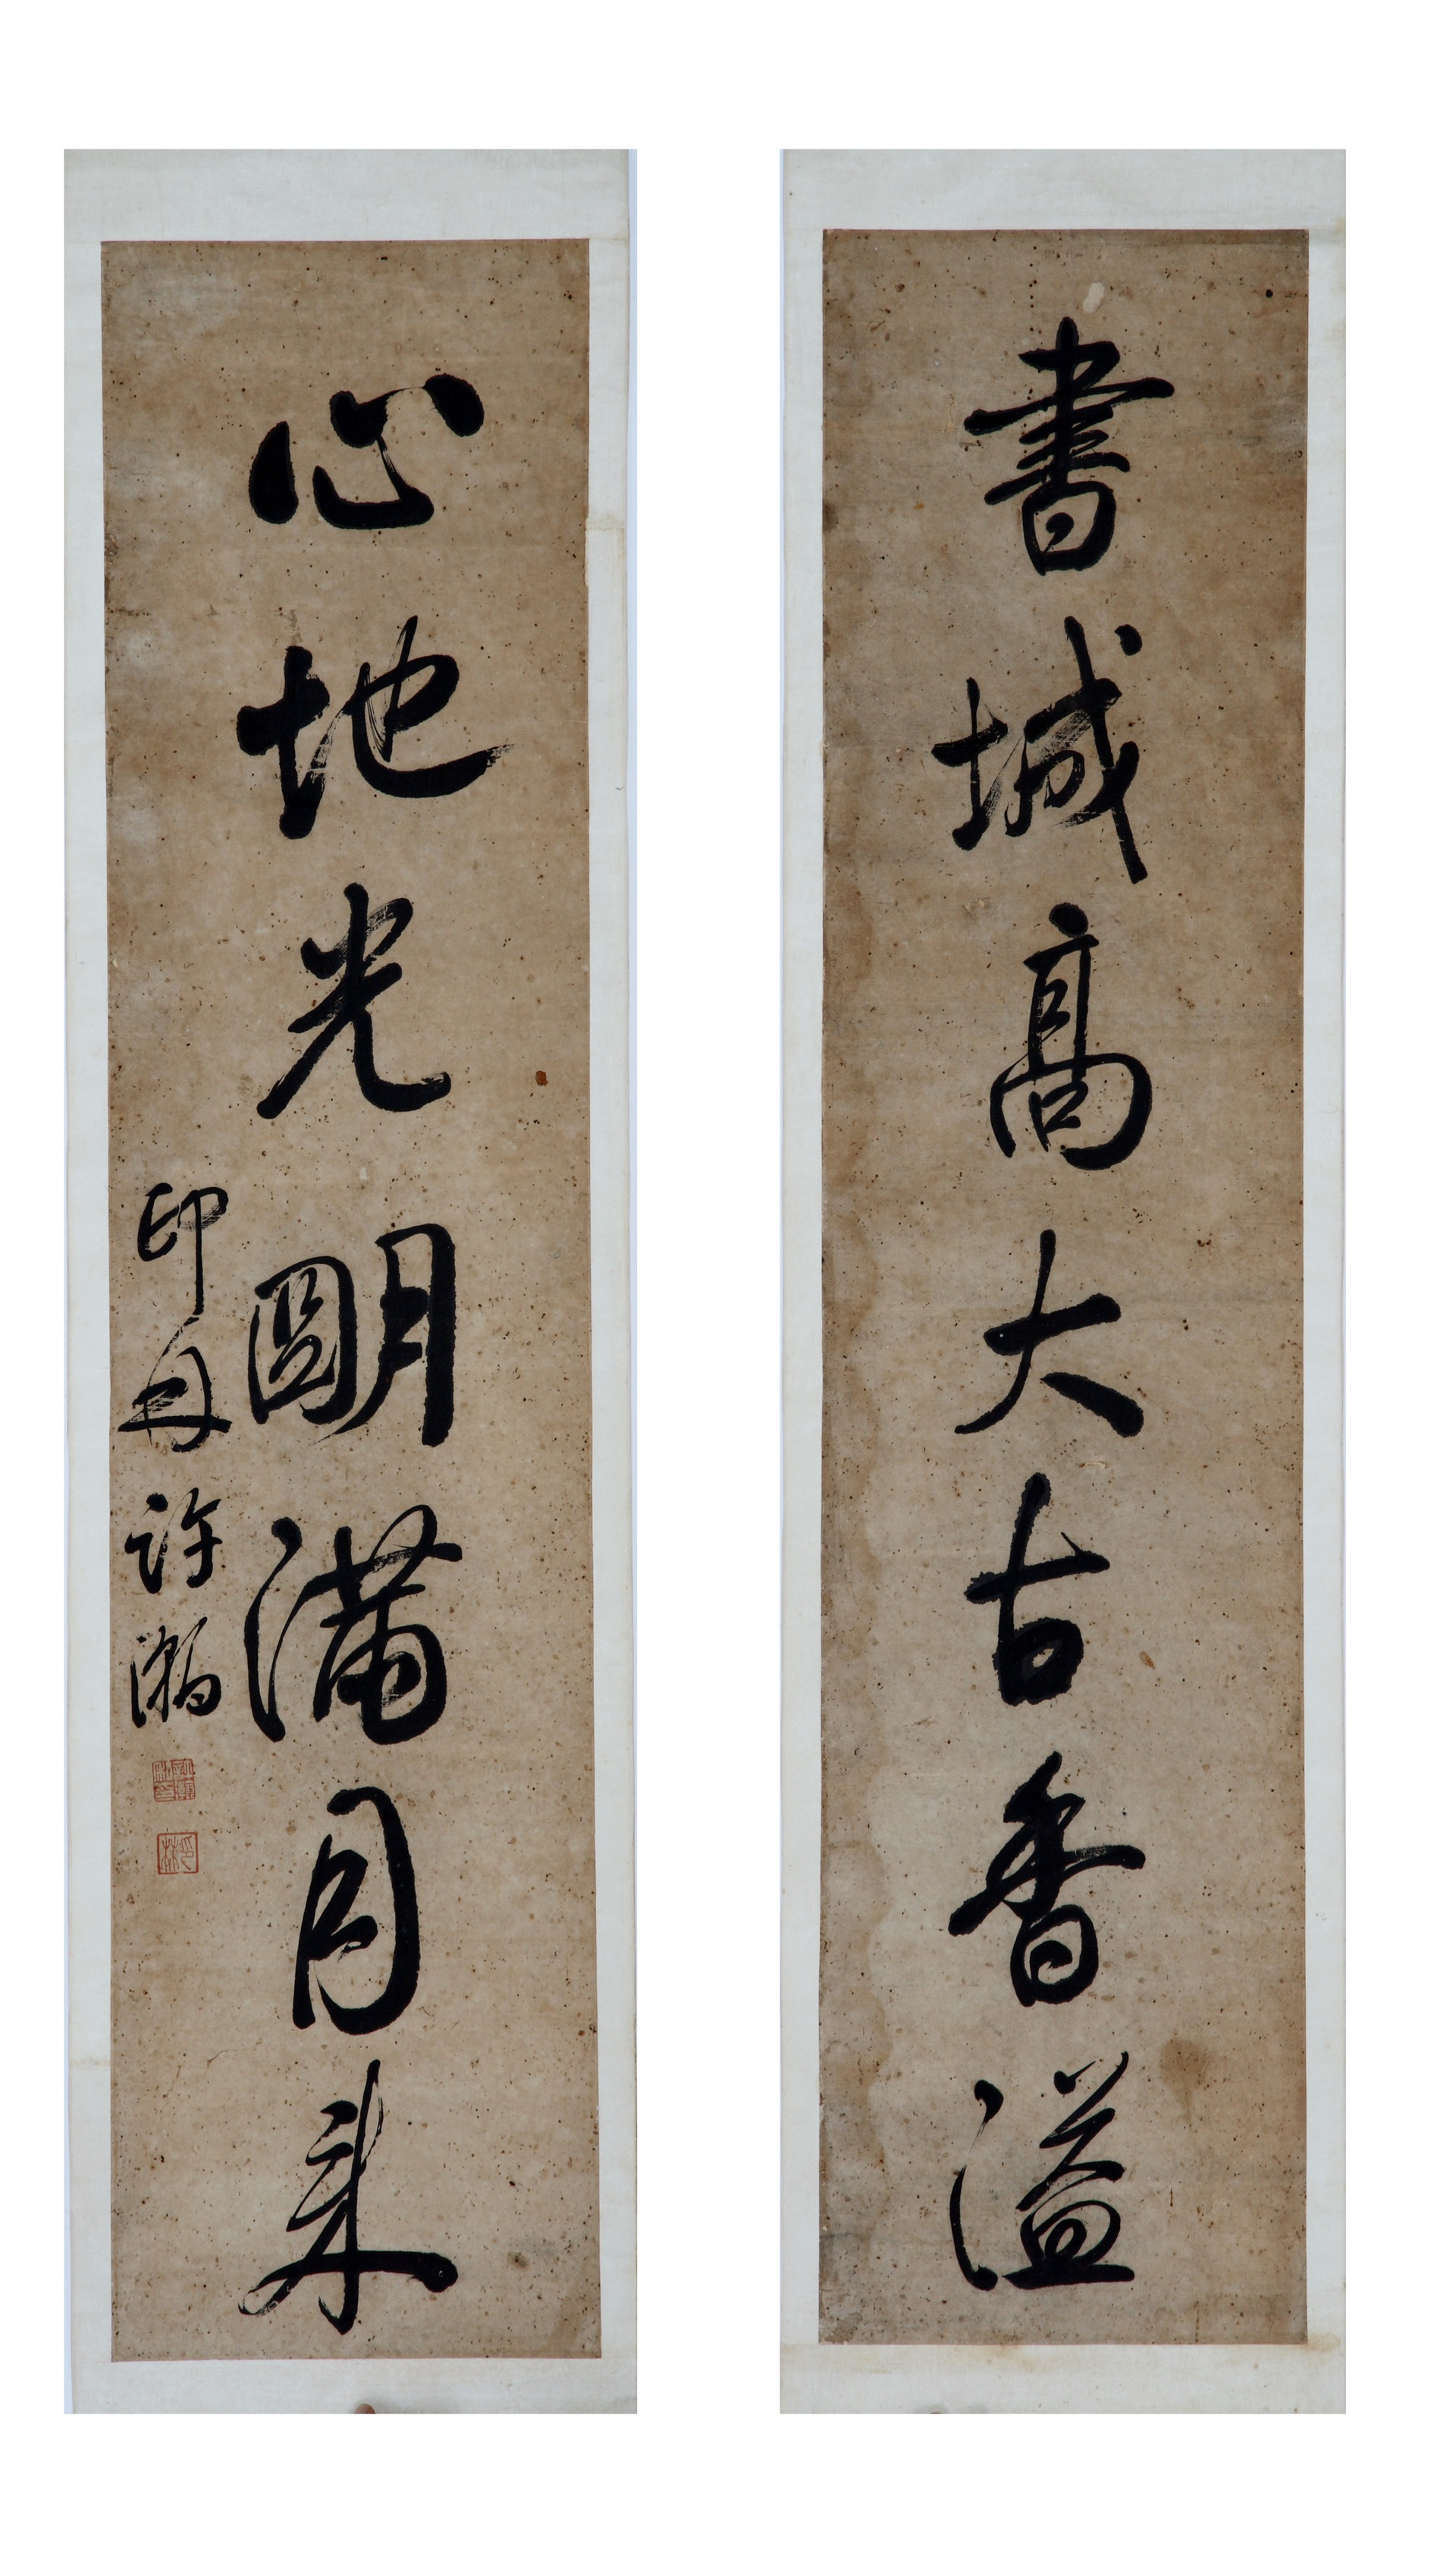 書城高大古香溢
心地光明滿月來
印林許瀚